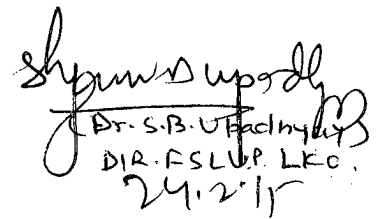 (Dr. S.B. Upadhyay)
DIR. FSL U.P. LKO.
24.2.15